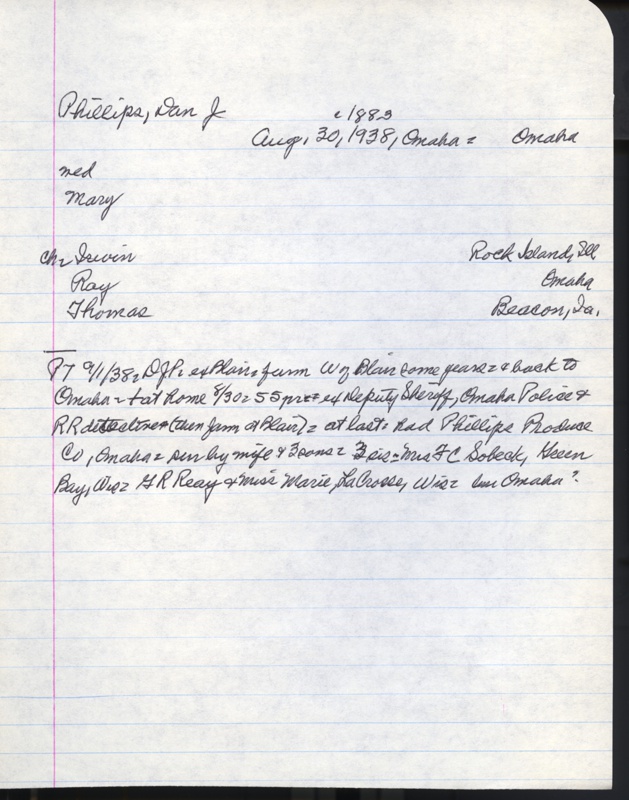 Phillips, Dan J c1883
Aug, 30, 1938, Omaha = Omaha
med
Mary
ch = Irvin Rock Island, Ill
Ray Omaha
Thomas Beacon, Ia.
PT 9/1/38 = DJP, ex Blair = farm W of Blair some years = & back to
Omaha = + at home 8/30 = 55 ex Deputy Sheriff, Omaha Police &
RR detective (then farm at Blair) = at last = had Phillips Produce
Co, Omaha = sur by wife & 3 sons = 3 sis = Mrs F C Sobeck, Green
Bay, Wis = G R Reay & Miss Marie, LaCrosse, Wis = bur Omaha?